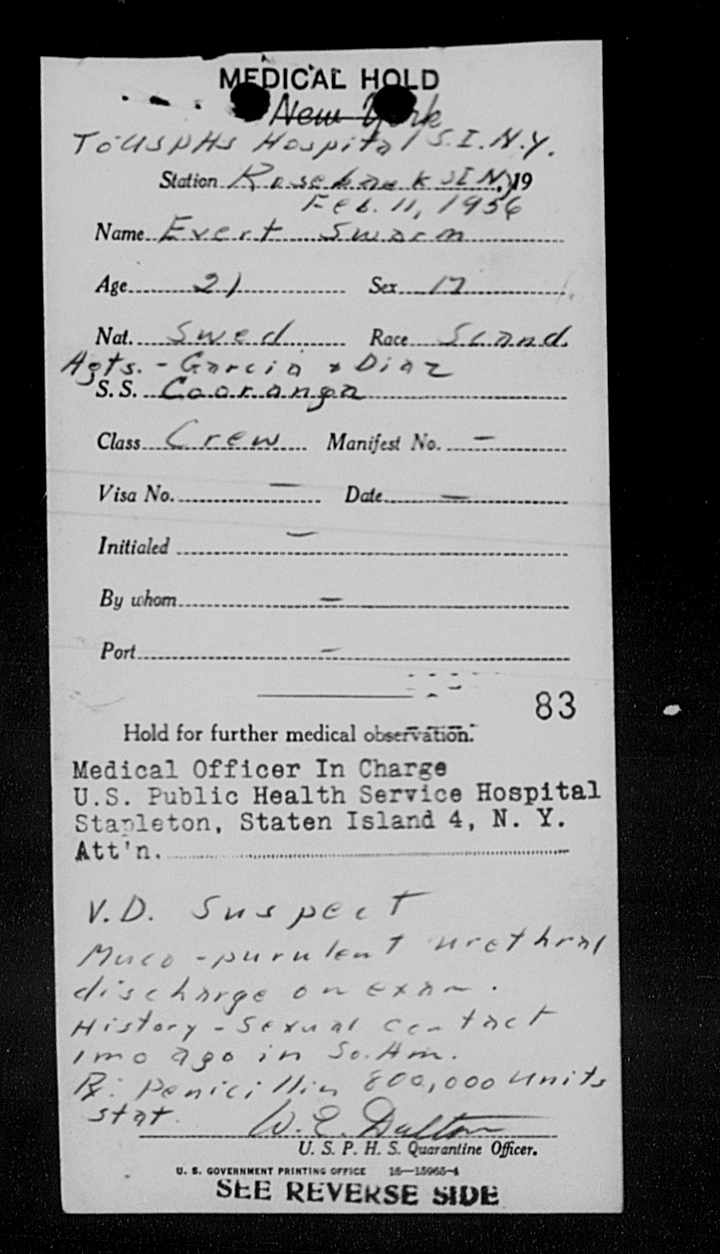 MEDICAL HOLD
New York
To USPHS Hospital S.I.N.Y.
Station Rosebank SINY, 19
Feb. 11, 1956
Name Evert Swarm
Age 21 Sex M
Nat. Swed Race Scand.
Agts. - Garcia & Diaz
S. S. Cooranga
Class Crew Manifest No. -
Visa No. - Date -
Initialed -
By whom -
Port -
83
Hold for further medical observation.
Medical Officer In Charge
U.S. Public Health Service Hospital
Stapleton, Staten Island 4, N. Y.
Att'n.
V.D. Suspect
Muco-purulent urethral
discharge on exam.
History - Sexual contact
1 mo ago in So. Am.
Rx: Penicillin 800,000 units
stat.
W. E. Dalton
U. S. P. H. S. Quarantine Officer.
U. S. GOVERNMENT PRINTING OFFICE 16—15965-4
SEE REVERSE SIDE